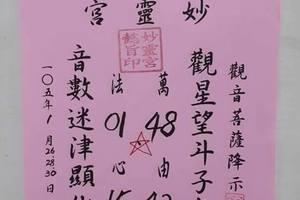 妙靈宮
觀音菩薩降示
觀星望斗子
妙靈宮
懿旨印
萬 48 由
法 01 心
音數迷津顯
一〇五年1月26 28 30日